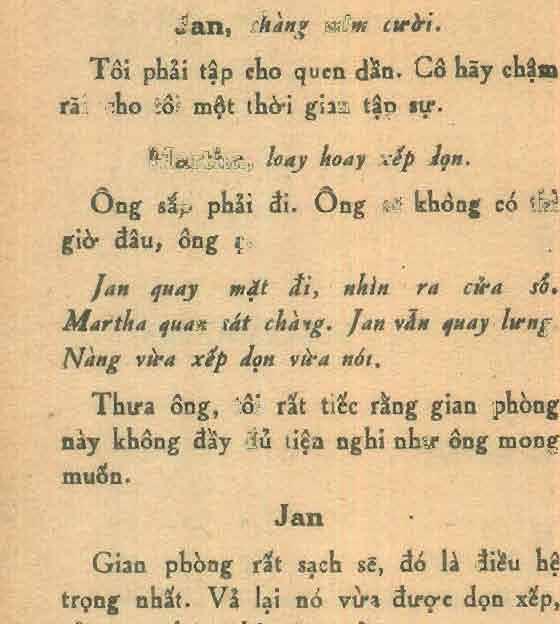 Jan, chàng mỉm cười.
Tôi phải tập cho quen dần. Cô hãy chậm
rãi cho tôi một thời gian tập sự.
Martha, loay hoay xếp dọn.
Ông sắp phải đi. Ông sẽ không có thì
giờ đâu, ông ạ
Jan quay mặt đi, nhìn ra cửa sổ.
Martha quan sát chàng. Jan vẫn quay lưng
Nàng vừa xếp dọn vừa nói.
Thưa ông, tôi rất tiếc rằng gian phòng
này không đầy đủ tiện nghi như ông mong
muốn.
Jan
Gian phòng rất sạch sẽ, đó là điều hệ
trọng nhất. Vả lại nó vừa được dọn xếp,